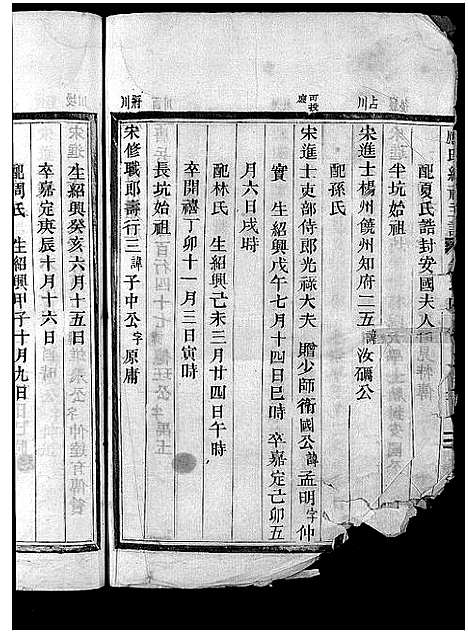 配夏氏誥封安國夫人
半坑始祖
宋進士楊州饒州知府二五諱汝礪公
配孫氏
宋進士吏部侍郎光祿大夫 贈少師衛國公諱孟明字仲
實 生紹興戊午七月十四日巳時 卒嘉定己卯五
月六日戌時
配林氏 生紹興己未三月廿四日午時
卒開禧丁卯十一月三日寅時
長坑始祖
宋修職郎壽行三諱子中公字原庸
生紹興癸亥六月十五日
卒嘉定庚辰十月十六日
配周氏 生紹興甲子十月九日